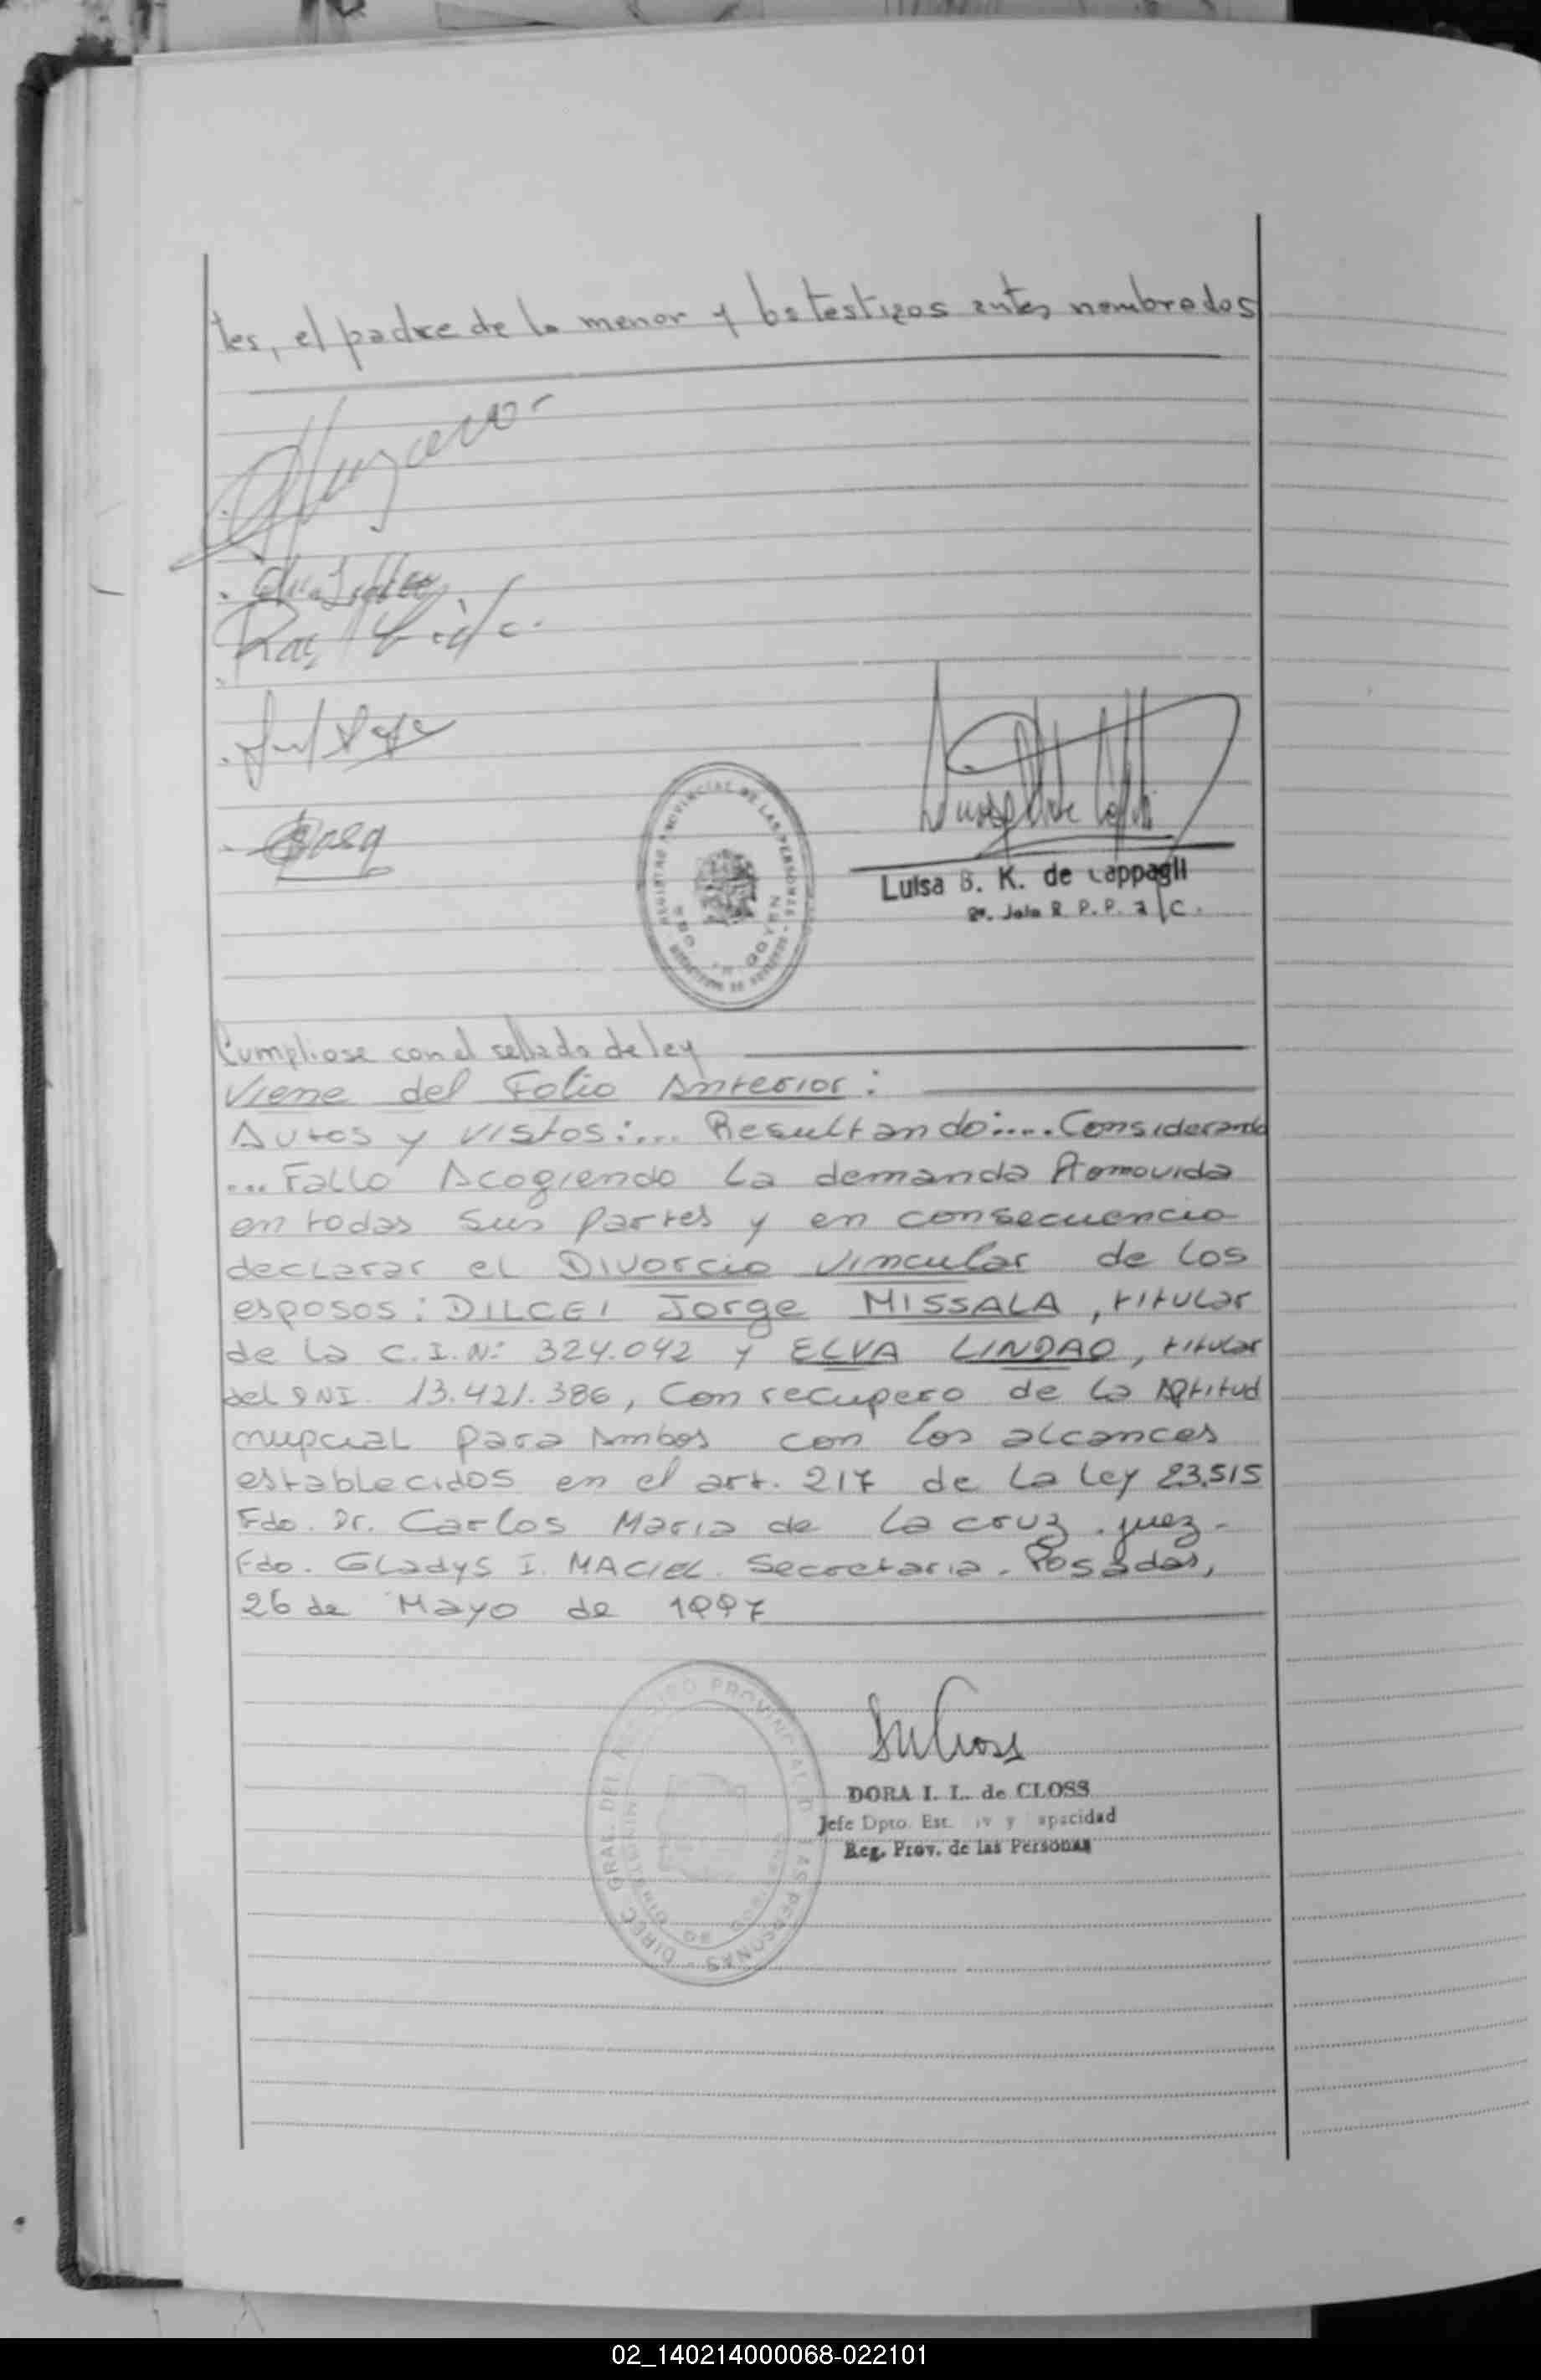 tes, el padre de la menor y los testigos antes nombrados
REGISTRO PROVINCIAL DE LAS PERSONAS
Luisa B. K. de Cappagli
R. P. P. a/c.
Cumpliose con el sellado de ley
Viene del Folio Anterior:
Autos y vistos:... Resultando:.... Considerando
... Fallo Acogiendo la demanda Promovida
en todas sus partes y en consecuencia
declarar el Divorcio Vincular de los
esposos: DILCEI Jorge MISSALA, titular
de la C.I.Nº 324.042 y ELVA LINDAO, titular
del DNI. 13.421.386, Con recupero de la Aptitud
nupcial para Ambos con los alcances
establecidos en el art. 217 de la Ley 23.515
Fdo. Dr. Carlos Maria de la cruz. juez-
Fdo. Gladys I. MACIEL. Secretaria. Posadas,
26 de Mayo de 1997
DIREC. GRAL. DEL PROVINCIAL D LAS PERSONAS
DORA I. L. de CLOSS
Jefe Dpto. Est. iv y apacidad
Reg. Prov. de las Personas
02_140214000068-022101